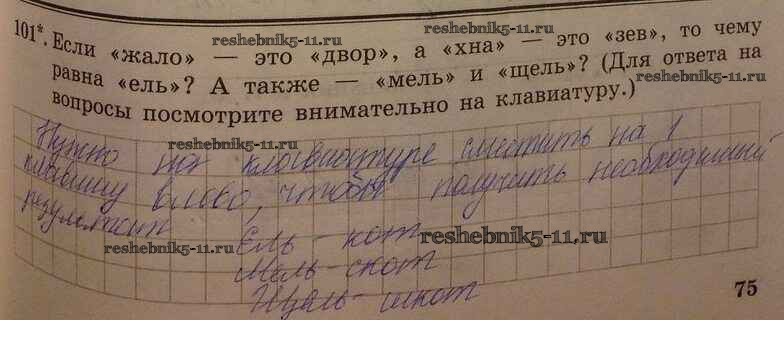 101*. Если «жало» — это «двор», а «хна» — это «зев», то чему
reshebnik5-11.ru
равна «ель»? А также — «мель» и «щель»? (Для ответа на
reshebnik5-11.ru
вопросы посмотрите внимательно на клавиатуру.)
Нужно на клавиатуре сместить на 1
reshebnik5-11.ru
клавишу влево, чтобы получить необходимый
результат
Ель - кот
reshebnik5-11.ru
reshebnik5-11.ru
Мель - скот
Щель - шкот
75